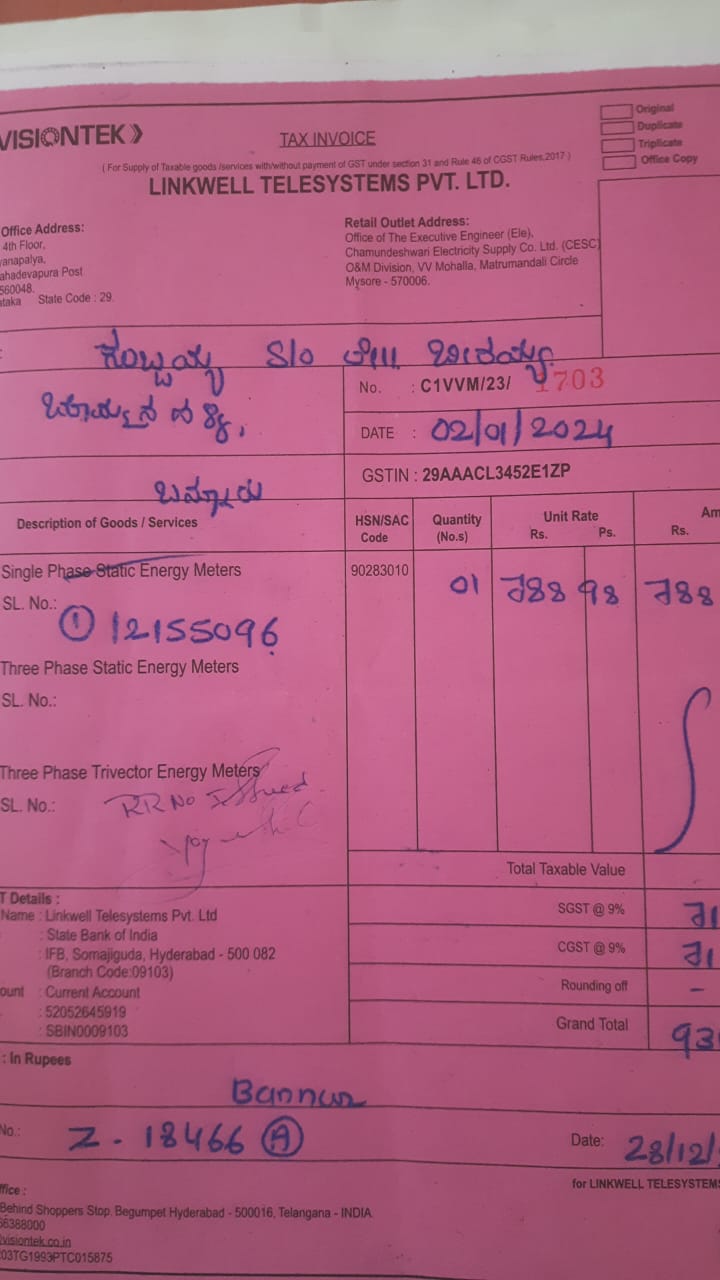 VISIONTEK
TAX INVOICE
( For Supply of Taxable goods /services with/without payment of GST under section 31 and Rule 46 of CGST Rules,2017 )
LINKWELL TELESYSTEMS PVT. LTD.
Original
Duplicate
Triplicate
Office Copy
Office Address:
4th Floor,
yanapalya,
ahadevapura Post
560048.
ataka State Code : 29.
Retail Outlet Address:
Office of The Executive Engineer (Ele),
Chamundeshwari Electricity Supply Co. Ltd. (CESC)
O&M Division, VV Mohalla, Matrumandali Circle
Mysore - 570006.
S/o
No. : C1VVM/23/ 1703
DATE : 02/01/2024
GSTIN : 29AAACL3452E1ZP
ಬನ್ನೂರು
Description of Goods / Services
HSN/SAC Code
Quantity (No.s)
Unit Rate
Rs. Ps.
Am
Rs.
Single Phase Static Energy Meters 90283010 01 788 98 788
SL. No.:
① 12155096
Three Phase Static Energy Meters
SL. No.:
Three Phase Trivector Energy Meters
SL. No.: RR No Issued
Total Taxable Value
T Details :
SGST @ 9% 71
Name : Linkwell Telesystems Pvt. Ltd
: State Bank of India
CGST @ 9% 71
: IFB, Somajiguda, Hyderabad - 500 082
(Branch Code:09103)
Rounding off -
ount : Current Account
: 52052645919
Grand Total 93
: SBIN0009103
: In Rupees
Bannur
No.: Z - 18466 Ⓐ
Date: 28/12/
for LINKWELL TELESYSTEMS
ffice :
Behind Shoppers Stop, Begumpet Hyderabad - 500016, Telangana - INDIA.
66388000
visiontek.co.in
03TG1993PTC015875